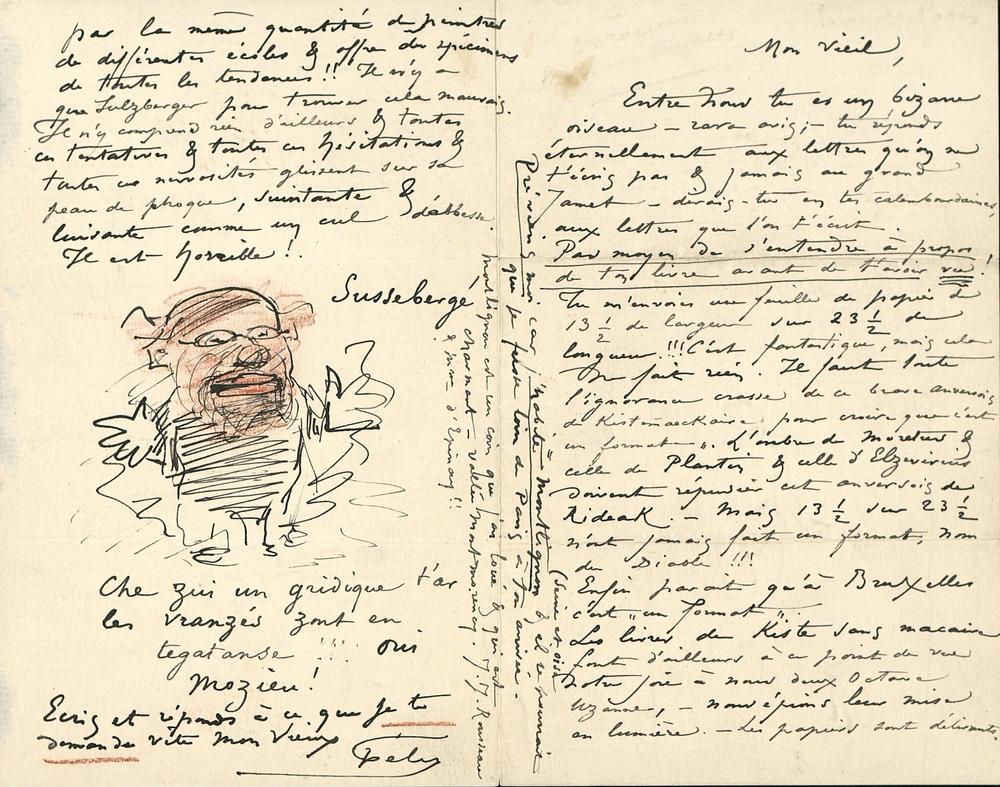 Mon vieil,
Entre nous tu es un bizarre
oiseau – rara avis; – tu réponds
éternellement aux lettres qu'on ne
t'écris pas & jamais au grand
Jamet – dirais-tu en tes calembourdaines,
aux lettres que l'on t'écrit.
Pas moyen de s'entendre à propos
de ton livre avant de t'avoir vu !
Tu m'envois une feuille de papier de
13 1/2 de largeur sur 23 1/2 de
longueur !!! C'est fantastique, mais cela
ne fait rien. Il faut toute
l'ignorance crasse de ce brave anversois
de Kistemaeckaire pour croire que c'est
un format ". L'ombre de Moretus &
celle de Plantin & celle d'Elzevirius
doivent répudier cet anversois de
Rideak. – Mais 13 1/2 sur 23 1/2
n'ont jamais fait un format, nom
du Diable !!!
Enfin parait qu'à Bruxelles
c'est "un format".
Les livres de Kiste sans macaire
font d'ailleurs à ce point de vue
notre joie à nous deux Octave
Uzanne, – nous épions leur mise
en lumière. – Les papiers sont délirants.
par la même quantité de peintres
de différentes écoles & offre des spécimens
de toutes les tendances !! Il n'y a
que Sulzberger pour trouver cela mauvais.
Il n'y comprend rien d'ailleurs & toutes
ces tentatives & toutes ces hésitations &
toutes ces nervosités glissent sur sa
peau de phoque, suintante &
luisante comme un cul d'abbesse.
Il est horrible !
Susseberge
Che zuis un gridique t'ar
les vranzés zont en
tegatanse !!! oui
Mozieu !
Ecris et réponds à ce que je te
demande vite mon vieux
Fély
Préviens moi car j'habite – Montlignon (Seine et oise)
que je fusse loin de Paris à ton arrivée.
Montlignon est un coin que j'ai loué & qui est
charmant – vallée Montmorency. J. J. Rousseau
& Mme d'Epinay !!